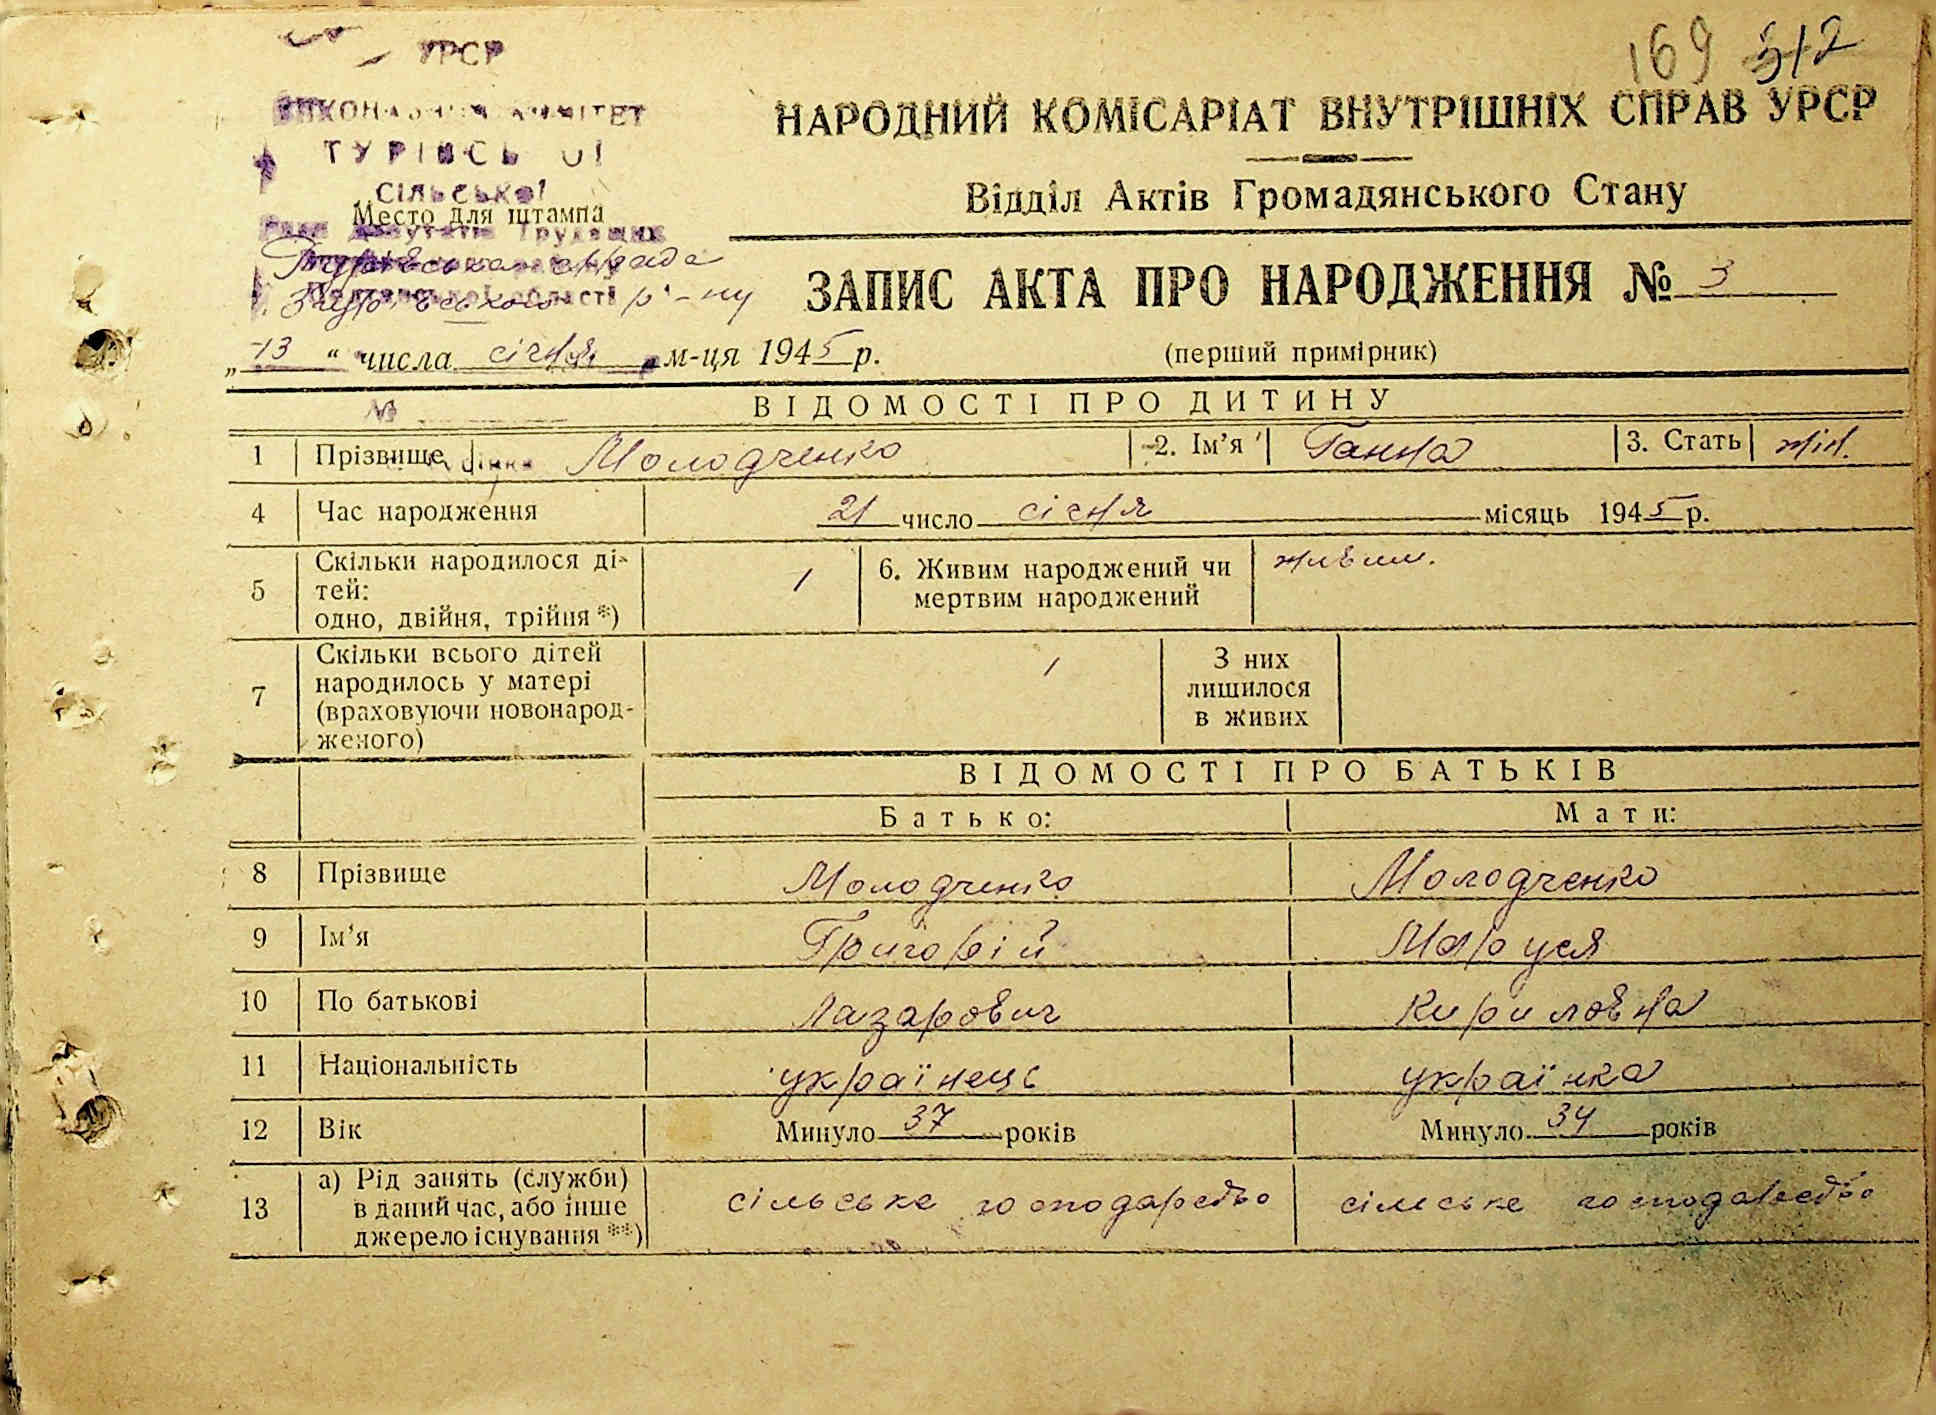 169 512
УРСР
ТУРІВСЬ ОЇ
СІЛЬСЬКОЇ
Место для штампа
депутатів Трудящих
Турівська с/рада
Полтавської області
р-ну
НАРОДНИЙ КОМІСАРІАТ ВНУТРІШНІХ СПРАВ УРСР
Відділ Актів Громадянського Стану
ЗАПИС АКТА ПРО НАРОДЖЕННЯ № 3
(перший примірник)
„13“ числа січня м-ця 1945 р.
№
ВІДОМОСТІ ПРО ДИТИНУ
1 Прізвище Молодченко 2. Ім’я Ганна 3. Стать жін.
4 Час народження 21 число січня місяць 1945 р.
5 Скільки народилося ді-
тей:
одно, двійня, трійня *) 1 6. Живим народжений чи
мертвим народжений живим.
7 Скільки всього дітей
народилось у матері
(враховуючи новонарод-
женого) 1 З них
лишилося
в живих
ВІДОМОСТІ ПРО БАТЬКІВ
Батько: Мати:
8 Прізвище Молодченко Молодченко
9 Ім’я Григорій Маруся
10 По батькові Лазарович Кириловна
11 Національність українець українка
12 Вік Минуло 37 років Минуло 34 років
13 а) Рід занять (служби)
в даний час, або інше
джерело існування **) сільське господарство сільське господарство